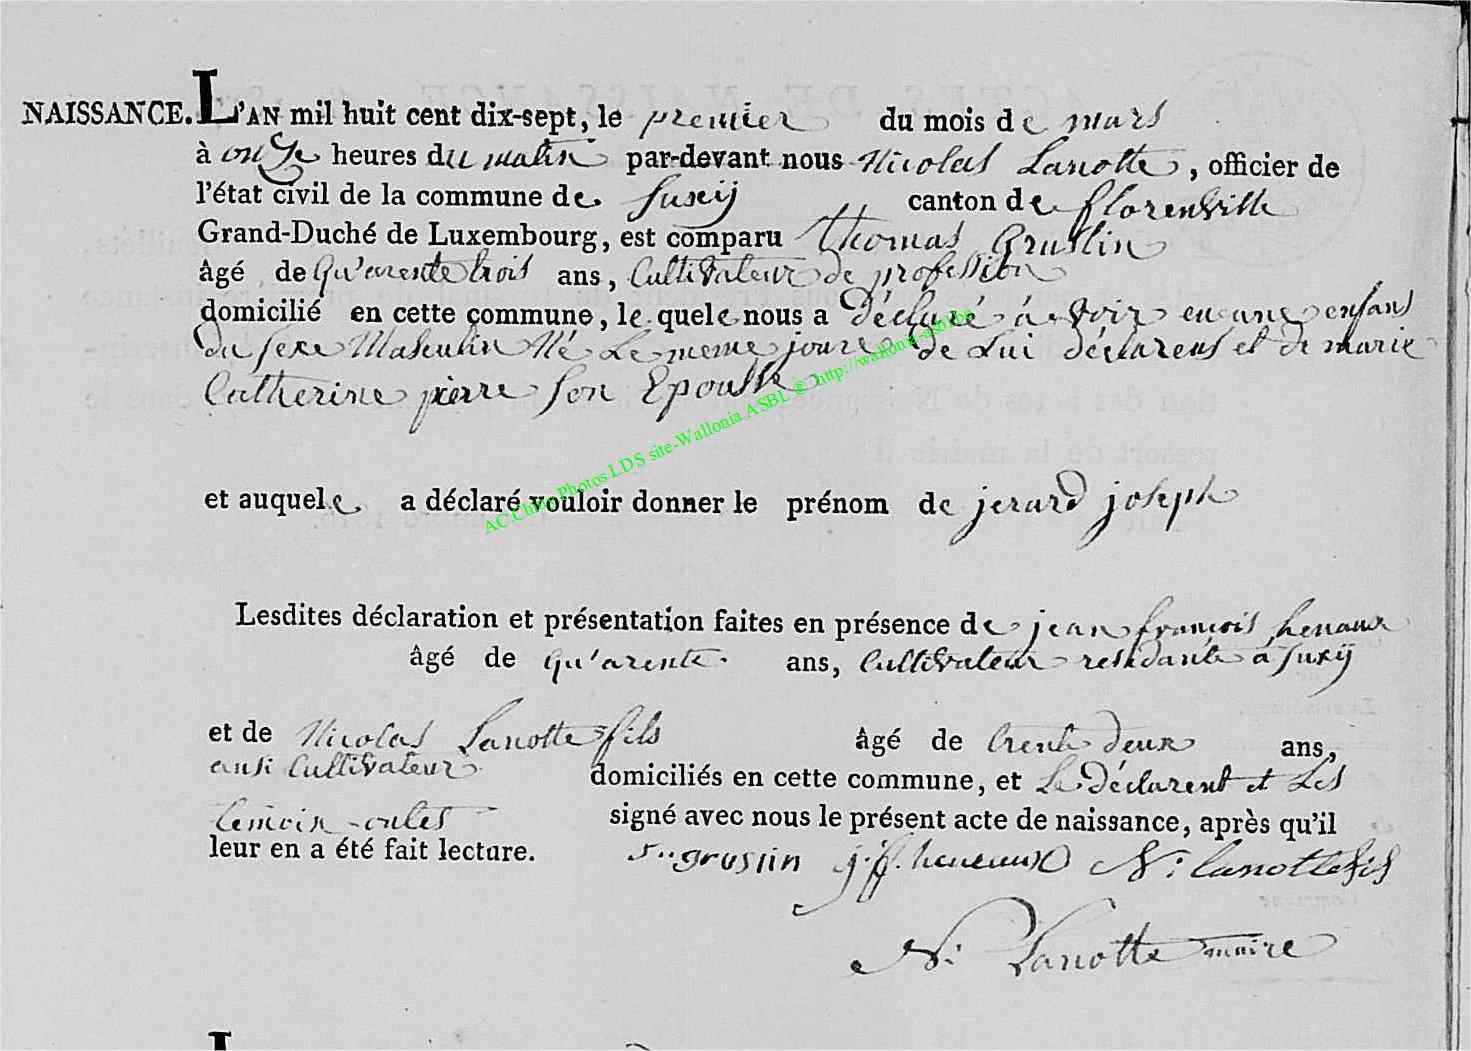 NAISSANCE. L'AN mil huit cent dix-sept, le premier du mois de mars
à onze heures du matin par-devant nous Nicolas Lanotte, officier de
l'état civil de la commune de Suxÿ canton de florenville
Grand-Duché de Luxembourg, est comparu Thomas Gruslin
âgé de Qu'arente trois ans, Cultivateur de profession
domicilié en cette commune, le quele nous a déclaré à voir eu une enfans
du sexe Masculin Né Le meme jour de Lui déclarens et de marie
Catherine pierre son Epousse
et auquele a déclaré vouloir donner le prénom de jerard joseph
Lesdites déclaration et présentation faites en présence de jean françois henaux
âgé de qu'arente ans, Cultivateur residante a Suxÿ
et de Nicolas Lanotte fils âgé de trente deux ans,
ausi Cultivateur domiciliés en cette commune, et Le déclarent et Les
temoin onles signé avec nous le présent acte de naissance, après qu'il
leur en a été fait lecture. grussin j. f. heneaux N: lanotte fis
N: Lanotte maire
AC.Chiny Photos LDS site-Wallonia ASBL © http://wallonia-asbl.be